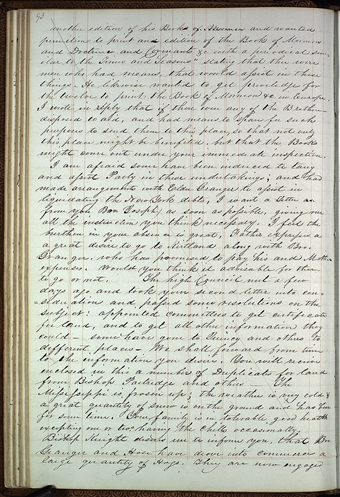 93
another edition of his Book of Mormon and wanted
permission to print an edition of the Book of Mormon
and Doctrine and Covenants &c with a periodical simi-
lar to the Times and Seasons" stating that there were
men who had means, that would assist in these
things. He likewise wanted to get privilege for
the Twelve to print the Book of Mormon in Europe.
I wrote in reply that if there were any of the Brethren
disposed to aid, and had means to spare for such
purposes to send them to this place, so that not only
this place might be benefited, but that the Books
might come out under your immediate inspection.
I am afraid some have been induced to tarry
and assist Parly in these undertakings; and had
made arrangements with Elder Granger to assist in
liquidating the New York debt, I want a letter as
from you Bro Joseph, as soon as possible, giving me
all the instruction you think necessary. I feel the
burthen in your absence is great, Father expresses a
a great desire to go to Kirtland along with Bro.
Granger, who has promised to pay his and Mothers
expenses. Would you think it advisable for them
to go or not. The High Council met a few
days ago and took your second letter into con-
sideration and passed some resolutions on the
subject: appointed committees to get certificates
for land, and to get all other information they
could — some have gone to Quincy and others to
different places. We shall forward from time
to time the information you need. You will receive
enclosed in this a number of Duplicates for land
from Bishop Partridge and others — The
Mississippi is frozen up; the weather is very cold &
a great quantity of snow is on the ground and has been
for some time. The family is in tolerable good health
excepting one or two having the chills occasionally.
Bishop Knight desires me to inform you, that Bro
Granger and Hoer have driven into commerce a
large quantity of Hogs. They are now engaged